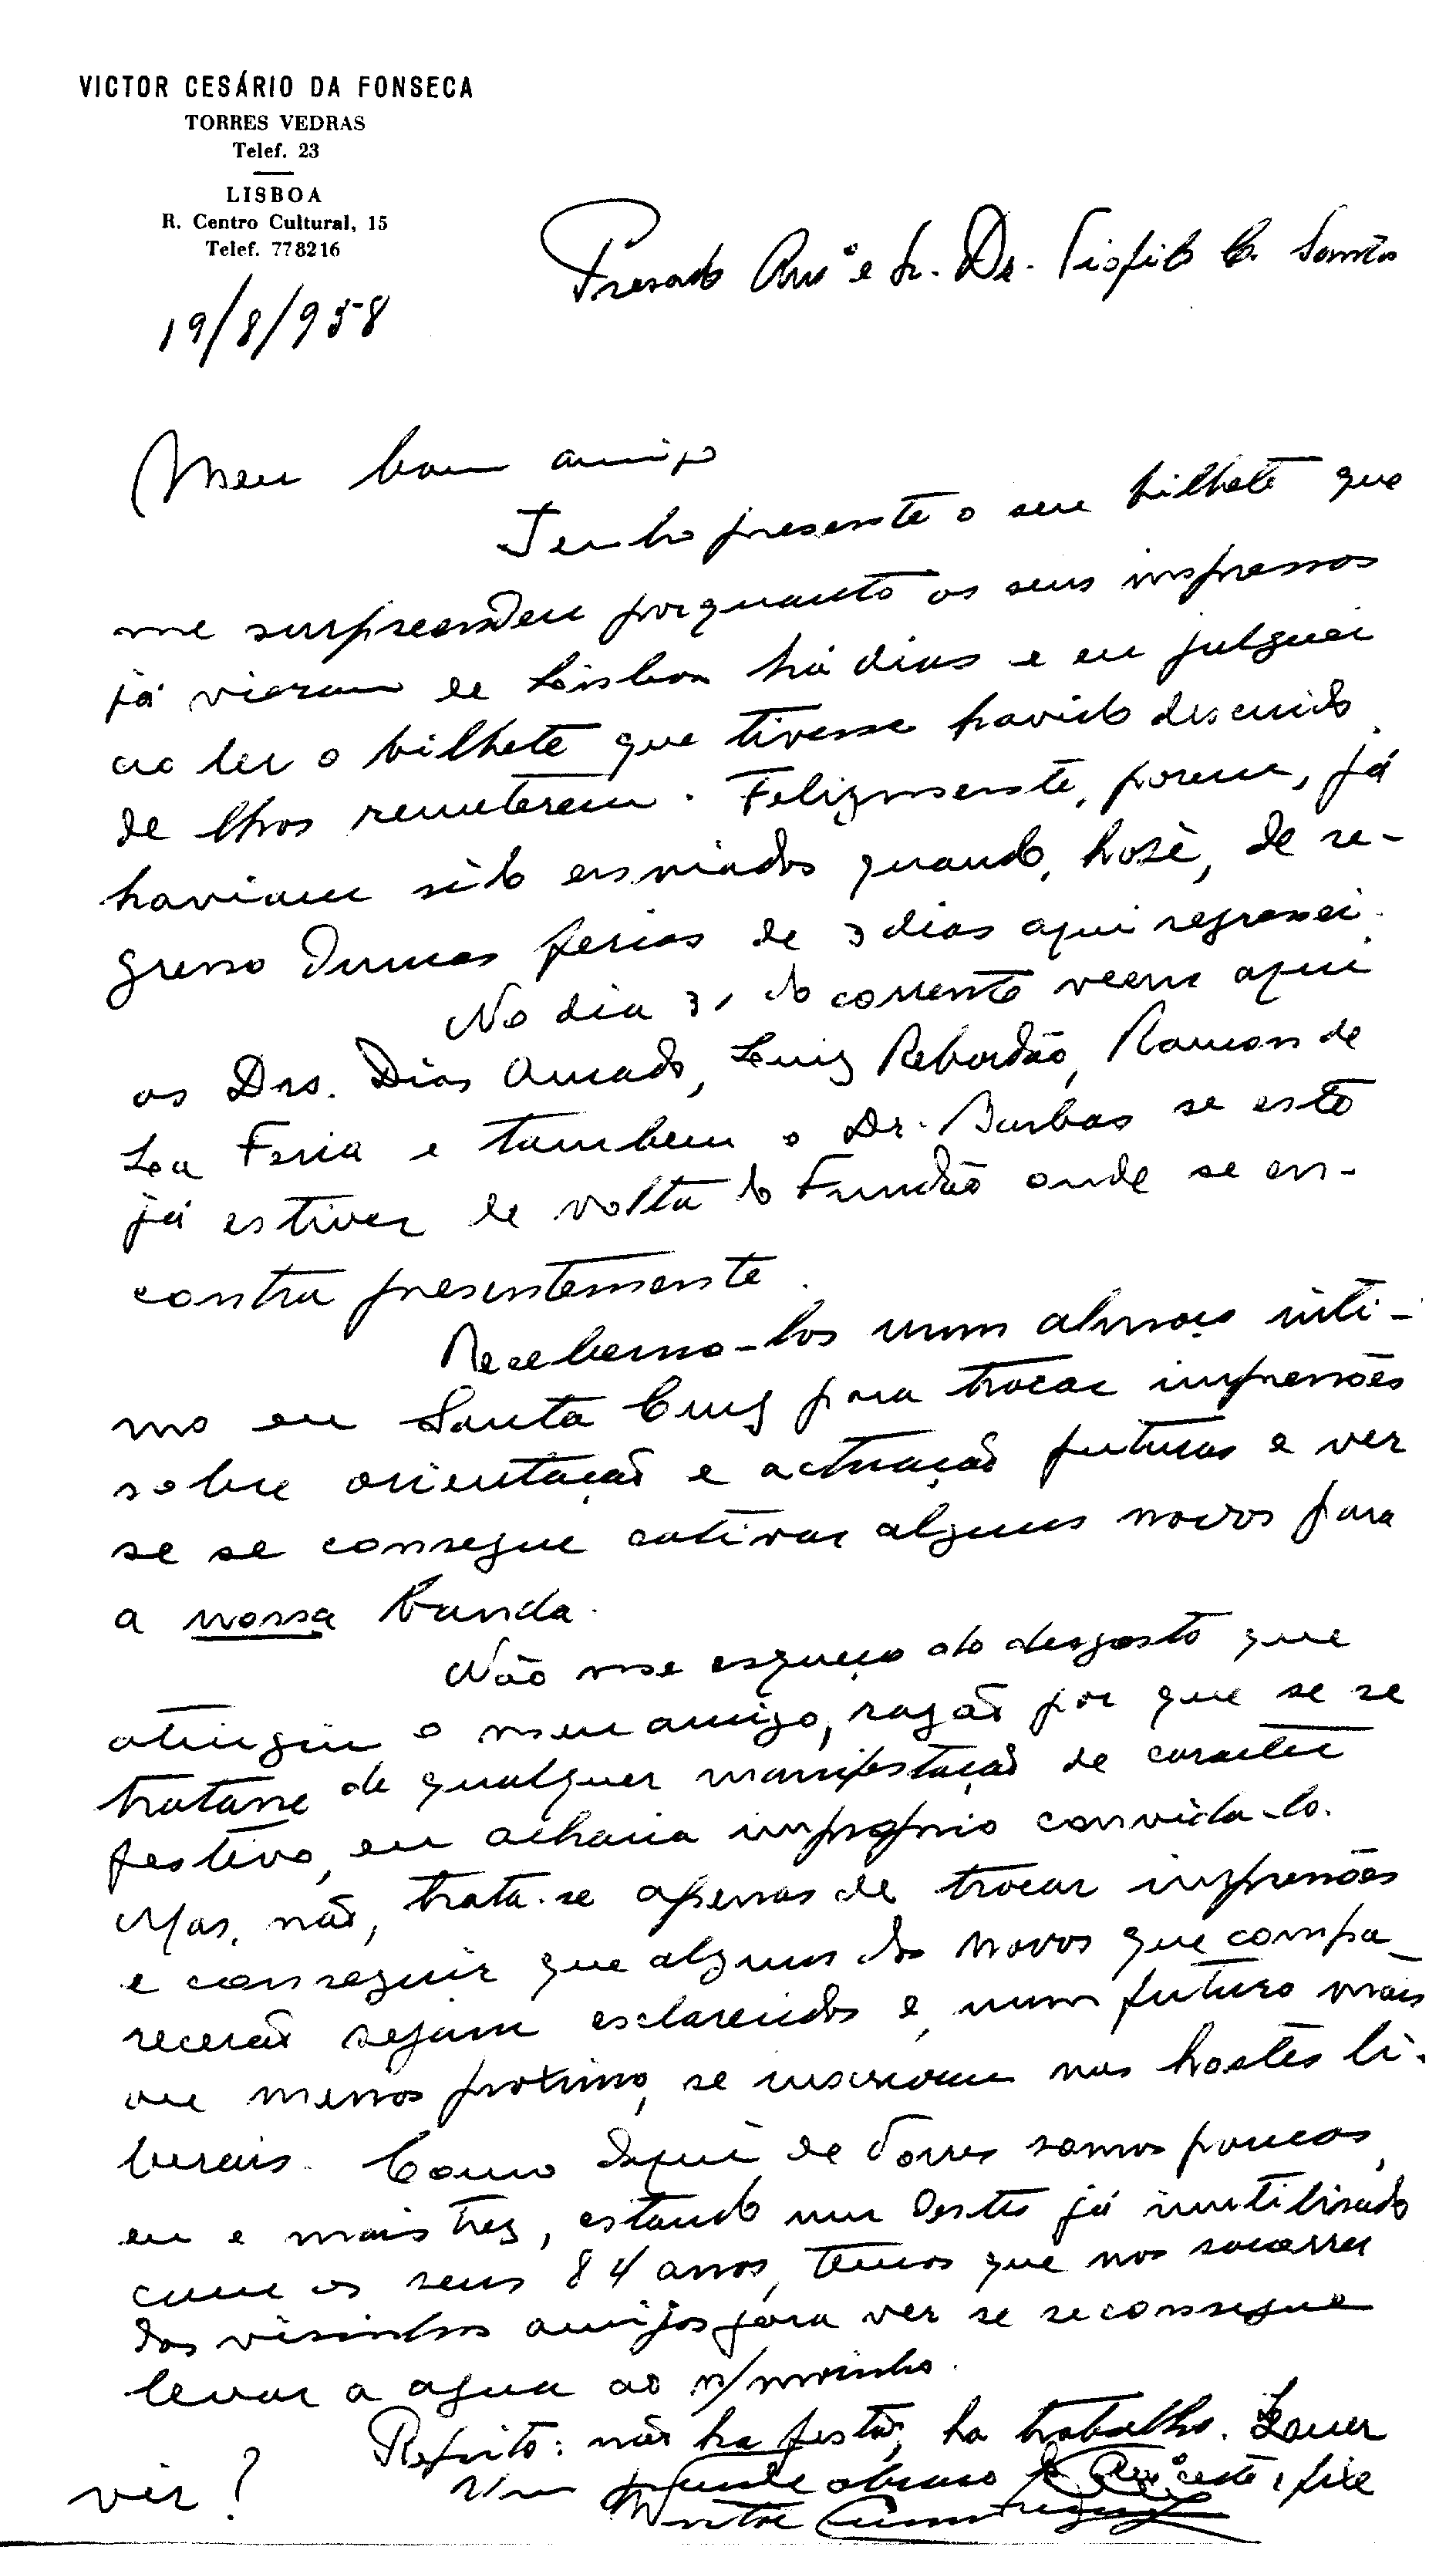 VICTOR CESÁRIO DA FONSECA
TORRES VEDRAS
Telef. 23
LISBOA
R. Centro Cultural, 15
Telef. 778216
19/8/958
Presado Amº e Sr. Dr. Teofilo C. Santos
Meu bom amigo
Tenho presente o seu bilhete que
me surpreendeu porquanto os seus impressos
já vieram de Lisboa há dias e eu julguei
ao ler o bilhete que tivesse havido descuido
de lhos remeterem. Felizmente, porem, já
haviam sido enviados quando, hoje, de re-
gresso dumas ferias de 3 dias aqui regressei.
No dia 31 do corrente veem aqui
os Drs. Dias Amado, Luiz Rebordão, Ramon de
La Feria e tambem o Dr. Barbas se este
já estiver de volta do Fundão onde se en-
contra presentemente.
Recebemo-los num almoço inti-
mo em Santa Cruz para trocar impressões
sobre orientação e actuação futuras e ver
se se consegue cativar alguns novos para
a nossa banda.
Não me esqueço do desgosto que
atingiu o meu amigo, razão por que se se
tratasse de qualquer manifestação de caracter
festivo, eu acharia improprio convida-lo.
Mas, não, trata-se apenas de trocar impressões
e conseguir que alguns dos novos que compa-
recerão sejam esclarecidos e, num futuro mais
ou menos proximo, se inscrevam nas hostes li-
berais. Como daqui de Torres somos poucos,
eu e mais trez, estando um destes já inutilisado
com os seus 84 anos, temos que nos socorrer
dos visinhos amigos para ver se se consegue
levar a agua ao n/ moinho.
Repito: não ha festa, ha trabalho. Quer
vir?
Um grande abraço do Amº certo e